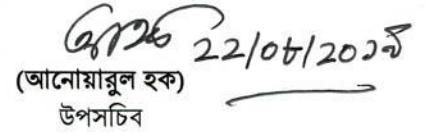 ২২/০৮/২০১৯
(আনোয়ারুল হক)
উপসচিব